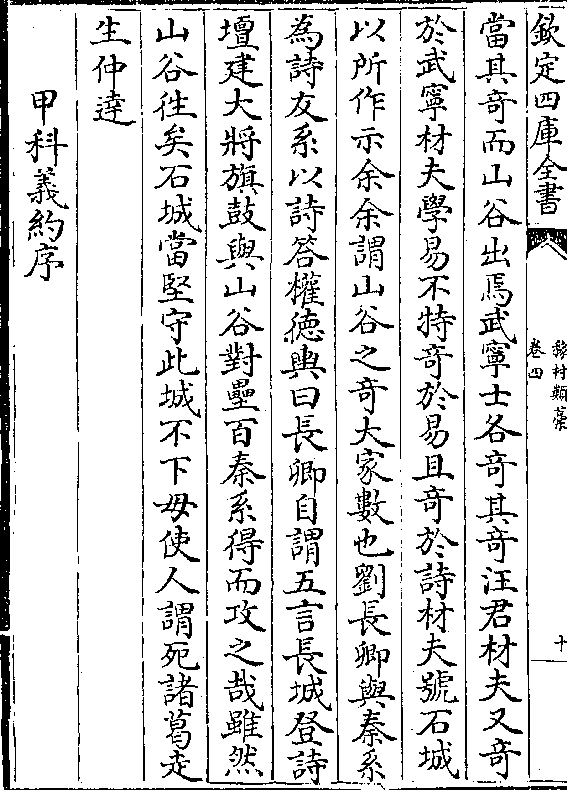 欽定四庫全書
豫村類藁
卷四
十
當其奇而山谷出焉武寧士各奇其奇汪君材夫又奇
於武寧材夫學易不特奇於易且奇於詩材夫號石城
以所作示余余謂山谷之奇大家數也劉長卿與秦系
為詩友系以詩答權徳輿曰長卿自謂五言長城登詩
壇建大將旗鼓與山谷對壘百秦系得而攻之哉雖然
山谷往矣石城當堅守此城不下毋使人謂死諸葛走
生仲達
甲科義約序